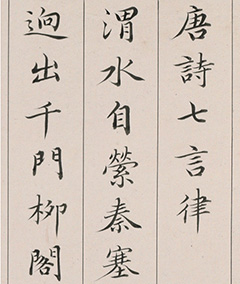 唐詩七言律
渭水自縈秦塞
逈出千門柳閣